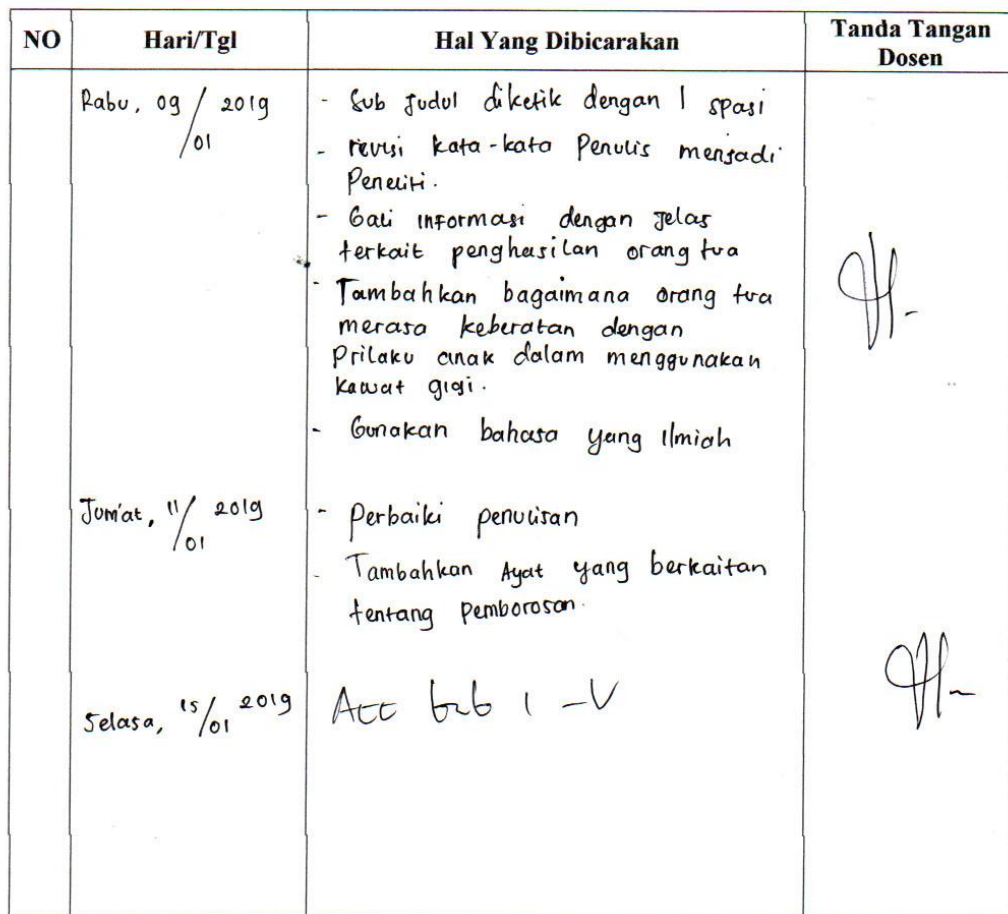 NO Hari/Tgl Hal Yang Dibicarakan Tanda Tangan Dosen
Rabu, 09/01 2019
- Sub Judul diketik dengan 1 spasi
- revisi kata-kata Penulis menjadi
Peneliti.
- Gali informasi dengan Jelas
terkait penghasilan orang tua
- Tambahkan bagaimana orang tua
merasa keberatan dengan
Prilaku anak dalam menggunakan
kawat gigi.
- Gunakan bahasa yang Ilmiah
Jum'at, 11/01 2019
- Perbaiki penulisan
- Tambahkan Ayat yang berkaitan
tentang pemborosan.
Selasa, 15/01 2019
Acc bab I - V